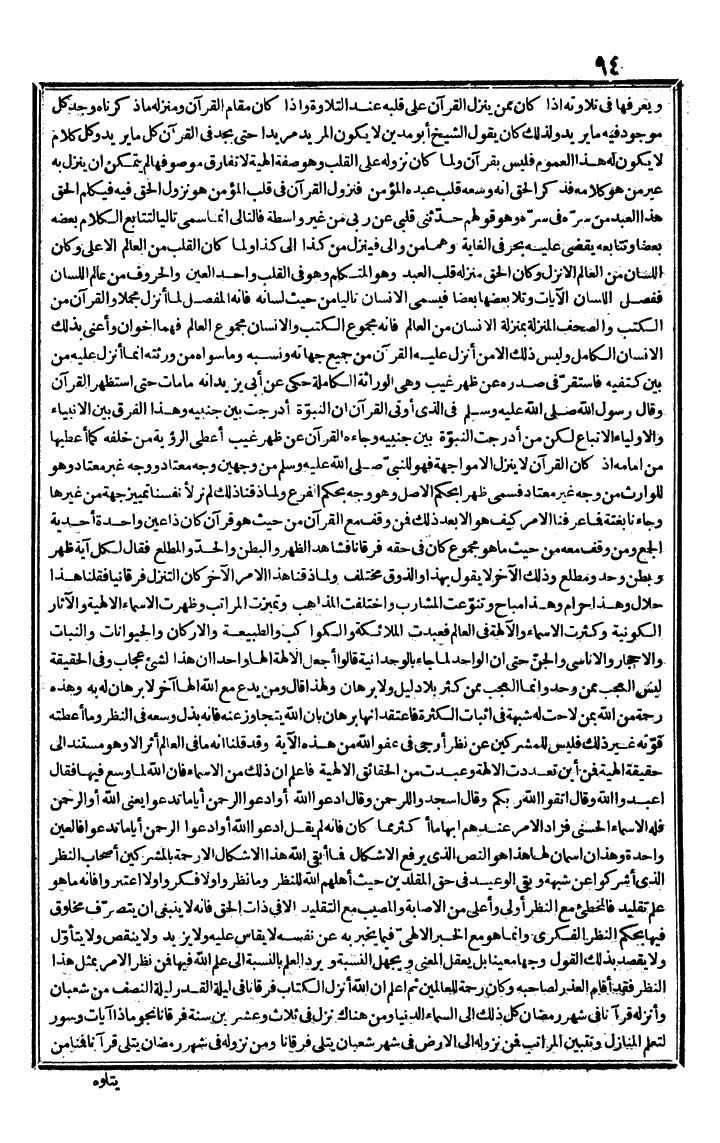 ٩٤
ويعرفها فى تلاوته اذا كان ممن ينزل القرآن على قلبه عند التلاوة واذا كان مقام القرآن ومنزله ماذ كرناه وجد كل
موجود فيه ما يريد ولذلك كان يقول الشيخ أبو مدين لا يكون المريد مريدا حتى يجد فى القرآن كل ما يريد وكل كلام
لا يكون له هذا العموم فليس بقرآن ولما كان نزوله على القلب وهو صفة الهية لا تفارق موصوفها لم يتمكن ان ينزل به
غير من هو كلامه فذكر الحق انه وسعه قلب عبده المؤمن فنزول القرآن فى قلب المؤمن هو نزول الحق فيه فيكلم الحق
هذا العبد من سرّه فى سرّه وهو قولهم حدّثنى قلبى عن ربى من غير واسطة فالتالى انما سمى تاليا لتتابع الكلام بعضه
بعضا وتتابعه يقضى عليه بحرفى الغاية وهما من والى فينزل من كذا الى كذا ولما كان القلب من العالم الاعلى وكان
اللسان من العالم الانزل وكان الحق منزله قلب العبد وهو المتكلم وهو فى القلب واحد العين والحروف من عالم اللسان
ففصل اللسان الآيات وتلا بعضها بعضا فيسمى الانسان تاليا من حيث لسانه فانه المفصل لما أنزل مجملا والقرآن من
الكتب والصحف المنزلة بمنزلة الانسان من العالم فانه مجموع الكتب والانسان مجموع العالم فهما اخوان وأعنى بذلك
الانسان الكامل وليس ذلك الا من أنزل عليه القرآن من جميع جهاته ونسبه وما سواه من ورثته انما أنزل عليه من
بين كتفيه فاستقرّ فى صدره عن ظهر غيب وهى الوراثة الكاملة حكى عن أبى يزيد انه مامات حتى استظهر القرآن
وقال رسول الله صلى الله عليه وسلم فى الذى أوتى القرآن ان النبوّة أدرجت بين جنبيه وهذا الفرق بين الانبياء
والاولياء الاتباع لكن من أدرجت النبوّة بين جنبيه وجاءه القرآن عن ظهر غيب أعطى الرؤية من خلفه كما أعطيها
من امامه اذ كان القرآن لا ينزل الا مواجهة فهو للنبىّ صلى الله عليه وسلم من وجهين وجه معتاد ووجه غير معتاد وهو
للوارث من وجه غير معتاد فسمى ظهرا بحكم الاصل وهو وجه بحكم الفرع ولما ذقنا ذلك لم نر لأنفسنا تمييز جهة من غيرها
وجاءنا بغتة فاعرفنا الامر كيف هو الا بعد ذلك فمن وقف مع القرآن من حيث هو قرآن كان ذا عين واحدة أحدية
الجمع ومن وقف معه من حيث ما هو مجموع كان فى حقه فرقانا فشاهد الظهر والبطن والحدّ والمطلع فقال لكل آية ظهر
وبطن وحد ومطلع وذلك الآخر لا يقول بهذا والذوق مختلف ولما ذقنا هذا الامر الآخر كان التنزل فرقانيا فقلنا هذا
حلال وهذا حرام وهذا مباح وتنوّعت المشارب واختلفت المذاهب وتميزت المراتب وظهرت الاسماء الالهية والآثار
الكونية وكثرت الاسماء والآلهة فى العالم فعبدت الملائكة والكواكب والطبيعة والاركان والحيوانات والنبات
والاحجار والاناسى والجنّ حتى ان الواحد لما جاء بالوحدانية قالوا أجعل الآلهة الها واحدا ان هذا لشئ عجاب وفى الحقيقة
ليس العجب ممن وحد وانما العجب ممن كثر بلا دليل ولا برهان ولهذا قال ومن يدع مع الله الها آخر لا برهان له به وهذه
رحمة من الله بمن لاحت له شبهة فى اثبات الكثرة فاعتقد انها برهان بان الله يتجاوز عنه فانه بذل وسعه فى النظر وما أعطته
قوّته غير ذلك فليس للمشركين عن نظر أرجى فى عفو الله من هذه الآية وقد قلنا انه مافى العالم أثر الا وهو مستند الى
حقيقة الهية فمن أين تعددت الآلهة وعبدت من الحقائق الالهية فاعلم ان ذلك من الاسماء فان الله لما وسع فيها فقال
اعبدوا الله وقال اتقوا الله ربكم وقال اسجدوا للرحمن وقال ادعوا الله أو ادعوا الرحمن أياما تدعوا يعنى الله أو الرحمن
فله الاسماء الحسنى فزاد الامر عندهم ابهاما أكثر مما كان فانه لم يقل ادعوا الله أو ادعوا الرحمن أياما تدعوا فالعين
واحدة وهذان اسمان لها هذا هو النص الذى يرفع الاشكال فما أبقى الله هذا الاشكال الا رحمة بالمشركين أصحاب النظر
الذى أشركوا عن شبهة وبقى الوعيد فى حق المقلدين حيث أهلهم الله للنظر وما نظروا ولا فكروا ولا اعتبروا فانه ما هو
علم تقليد فالمخطئ مع النظر أولى وأعلى من الاصابة والمصيب مع التقليد الا فى ذات الحق فانه لا ينبغى ان يتصرّف مخلوق
فيها بحكم النظر الفكرى وانما هو مع الخبر الالهىّ فيما يخبر به عن نفسه لا يقاس عليه ولا يزيد ولا ينقص ولا يتأوّل
ولا يقصد بذلك القول وجها معينا بل يعقل المعنى ويجهل النسبة ويرد العلم بالنسبة الى علم الله فيها فمن نظر الامر بمثل هذا
النظر فقد أقام العذر لصاحبه وكان رحمة للعالمين ثم اعلم ان الله أنزل الكتاب فرقانا فى ليلة القدر ليلة النصف من شعبان
وأنزله قرآنا فى شهر رمضان كل ذلك الى السماء الدنيا ومن هناك نزل فى ثلاث وعشرين سنة فرقانا نجوما ذا آيات وسور
لتعلم المنازل وتتبين المراتب فمن نزوله الى الارض فى شهر شعبان يتلى فرقانا ومن نزوله فى شهر رمضان يتلى قرآنا فمنا من
يتلوه